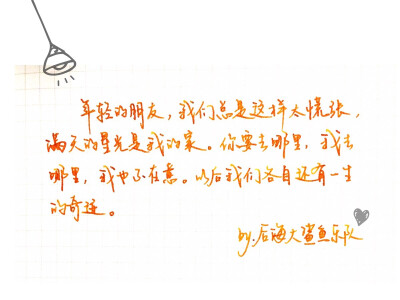 年轻的朋友，我们总是这样太慌张，
满天的星光是我的家。你要去哪里，我去
哪里，我也不在意。以后我们各自还有一生
的奇迹。
by.后海大鲨鱼乐队